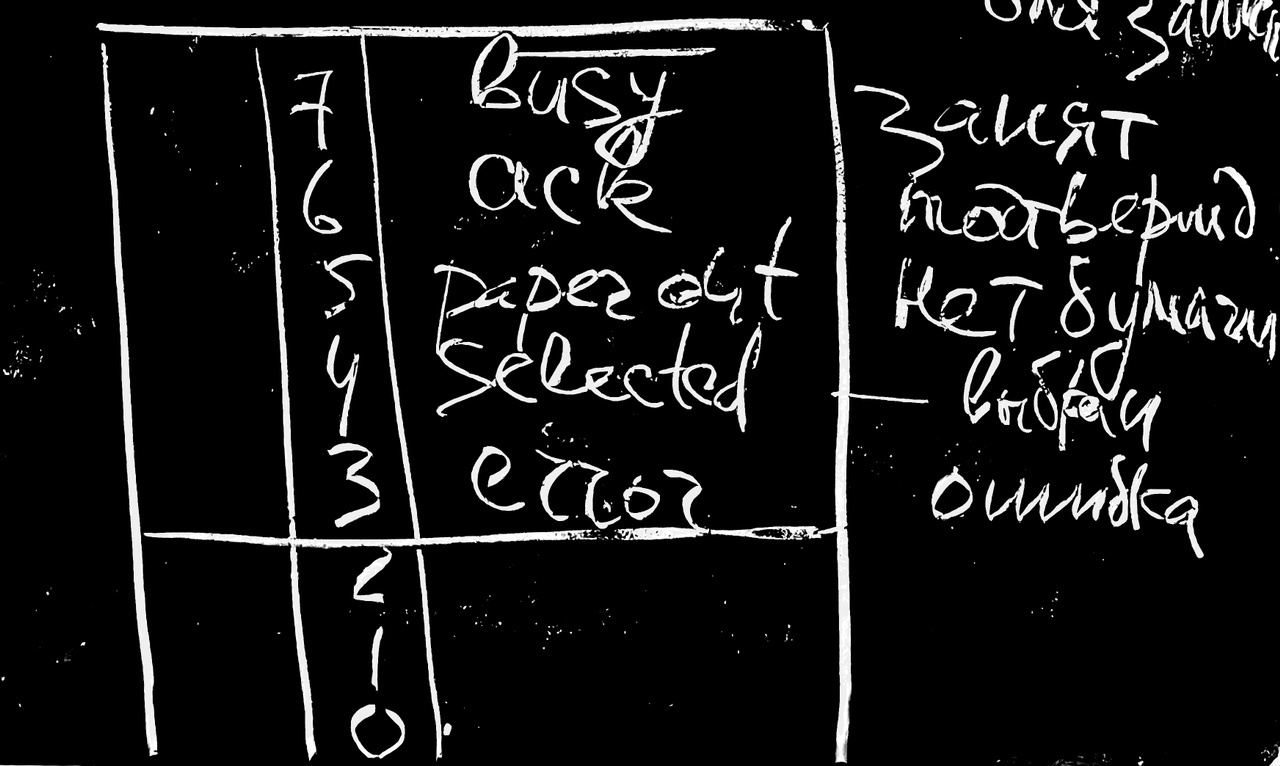 7 Busy занят
6 ack подтвержд
5 paper out нет бумаги
4 selected — выбран
3 error ошибка
2
1
0